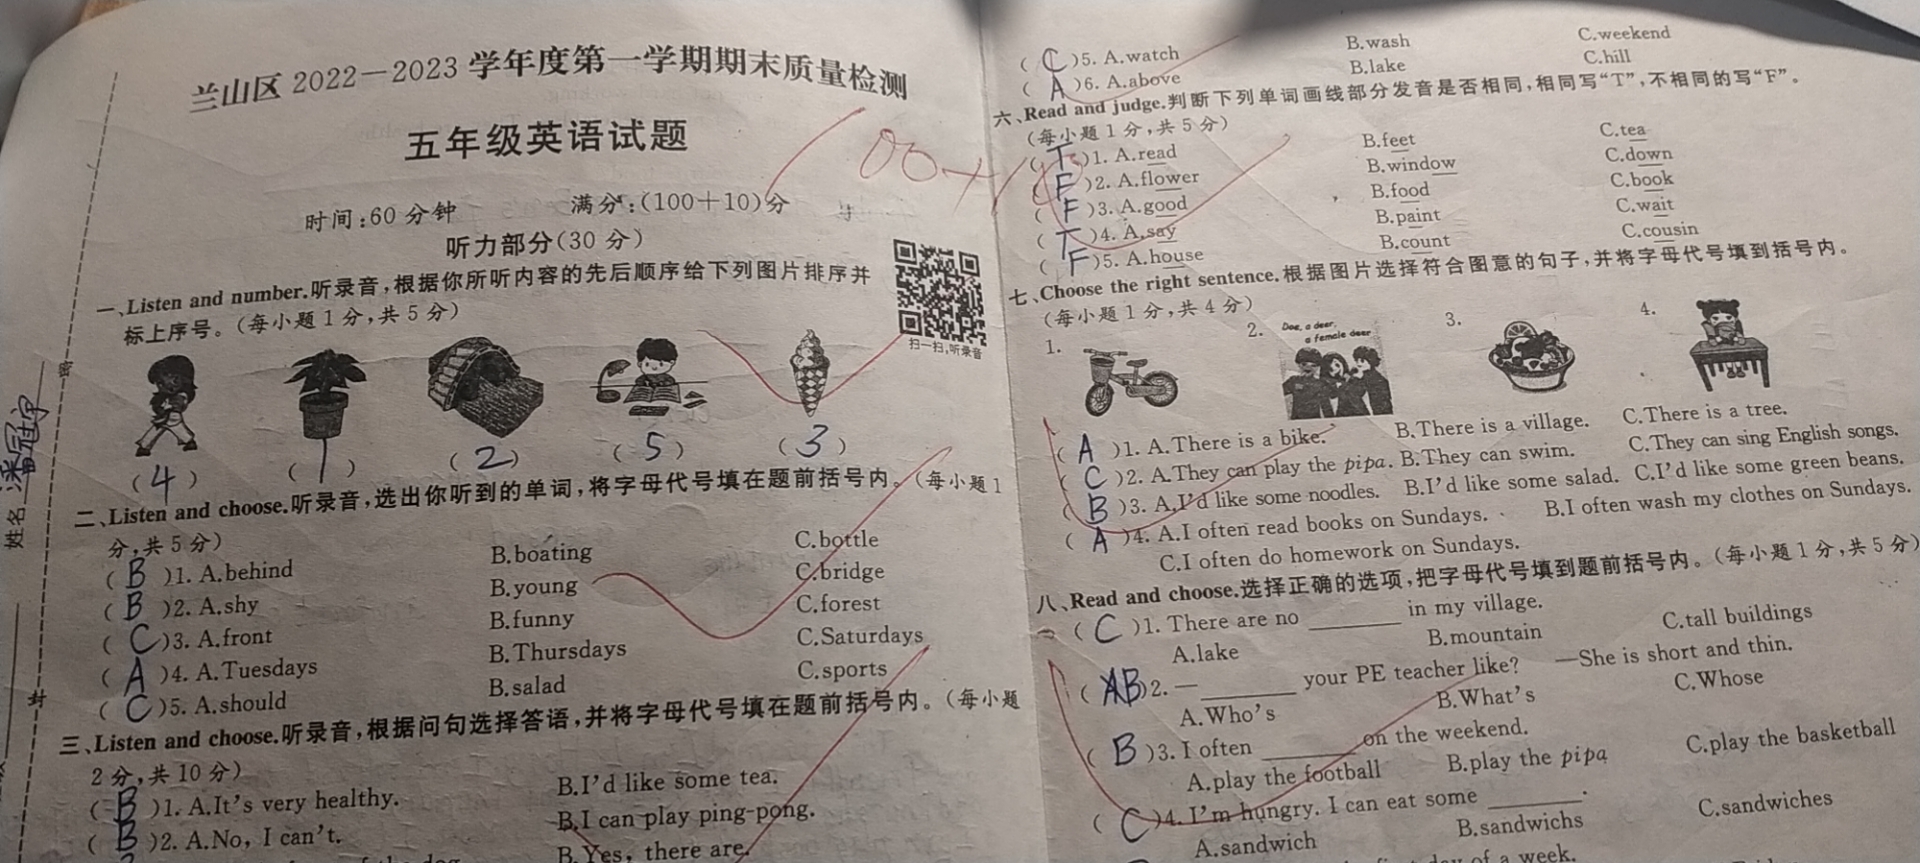 兰山区 2022—2023 学年度第一学期期末质量检测
五年级英语试题
100+10
时间:60 分钟 满分:(100+10)分
听力部分(30 分)
扫一扫,听录音
一、Listen and number.听录音,根据你所听内容的先后顺序给下列图片排序并
标上序号。(每小题 1 分,共 5 分)
(4) (1) (2) (5) (3)
二、Listen and choose.听录音,选出你听到的单词,将字母代号填在题前括号内。(每小题 1
分,共 5 分)
( B )1. A.behind B.boating C.bottle
( B )2. A.shy B.young C.bridge
( C )3. A.front B.funny C.forest
( A )4. A.Tuesdays B.Thursdays C.Saturdays
( C )5. A.should B.salad C.sports
三、Listen and choose.听录音,根据问句选择答语,并将字母代号填在题前括号内。(每小题
2 分,共 10 分)
( B )1. A.It's very healthy. B.I'd like some tea.
( B )2. A.No, I can't. B.I can play ping-pong.
of the dog B.Yes, there are.
姓名
密
封
( C )5. A.watch B.wash C.weekend
( A )6. A.above B.lake C.hill
六、Read and judge.判断下列单词画线部分发音是否相同,相同写“T”,不相同的写“F”。
(每小题 1 分,共 5 分)
( T )1. A.read B.feet C.tea
( F )2. A.flower B.window C.down
( F )3. A.good B.food C.book
( T )4. A.say B.paint C.wait
( F )5. A.house B.count C.cousin
七、Choose the right sentence.根据图片选择符合图意的句子,并将字母代号填到括号内。
(每小题 1 分,共 4 分)
1. 2. 3. 4.
Doe, a deer,
a female deer
( A )1. A.There is a bike. B.There is a village. C.There is a tree.
( C )2. A.They can play the pipa. B.They can swim. C.They can sing English songs.
( B )3. A.I'd like some noodles. B.I'd like some salad. C.I'd like some green beans.
( A )4. A.I often read books on Sundays. B.I often wash my clothes on Sundays.
C.I often do homework on Sundays.
八、Read and choose.选择正确的选项,把字母代号填到题前括号内。(每小题 1 分,共 5 分)
( C )1. There are no ________ in my village.
A.lake B.mountain C.tall buildings
( B )2. — ________ your PE teacher like? —She is short and thin.
A.Who's B.What's C.Whose
( B )3. I often ________ on the weekend.
A.play the football B.play the pipa C.play the basketball
( C )4. I'm hungry. I can eat some ________.
A.sandwich B.sandwichs C.sandwiches
day of a week.